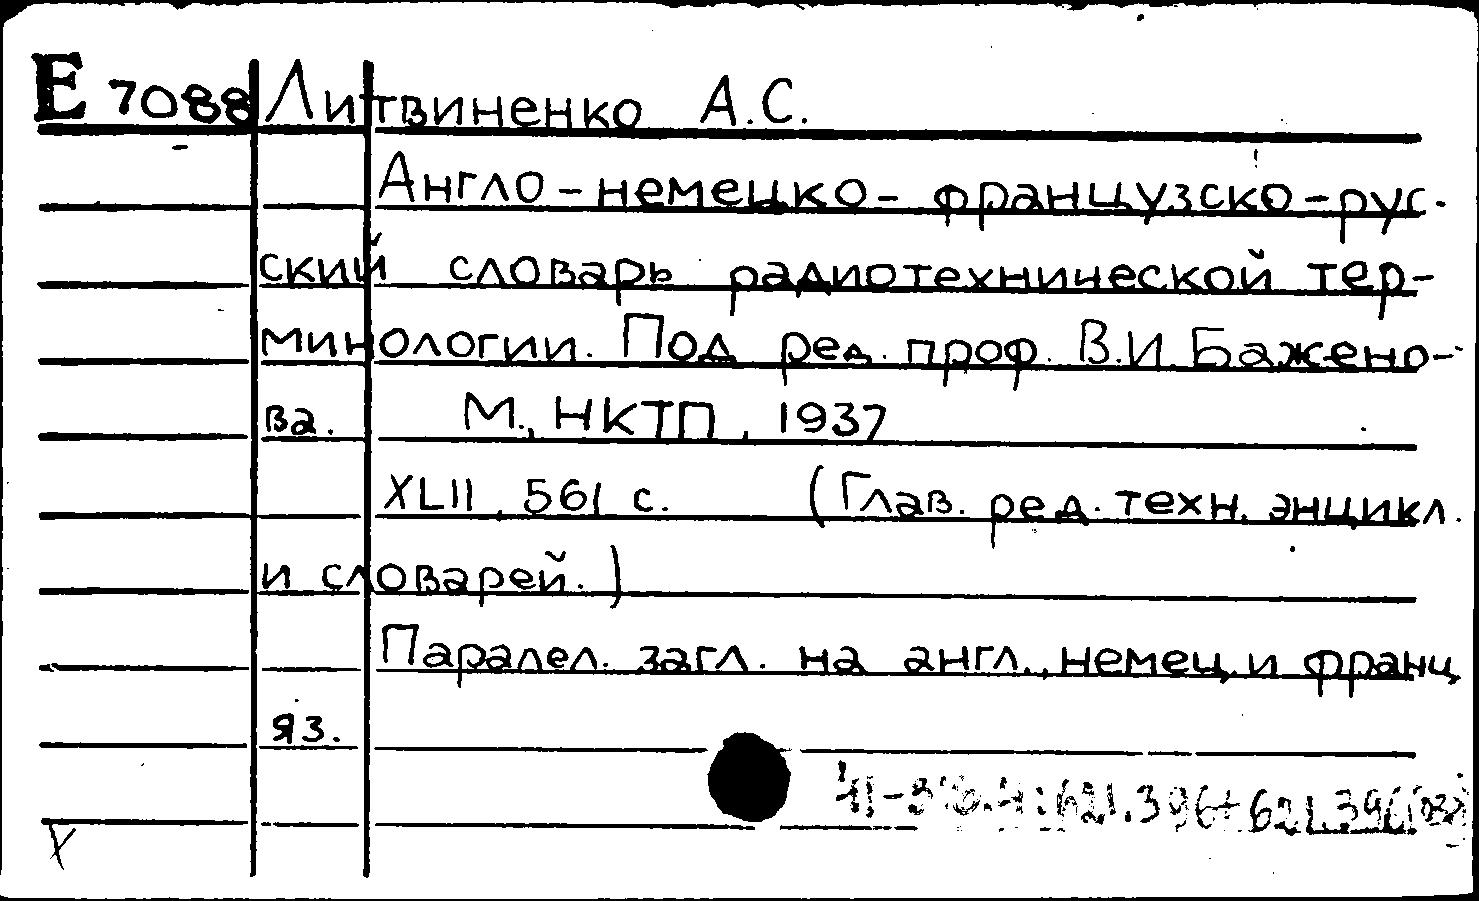 E 7088 Литвиненко А.С.
Англо-немецко-французско-рус-
ский словарь радиотехнической тер-
минологии. Под ред. проф. В.И. Бажено-
ва. М., НКТП, 1937
XLII, 561 с. (Глав. ред. техн. энцикл.
и словарей.)
Паралел. загл. на англ., немец. и франц
яз.
621.396+621.396(03)